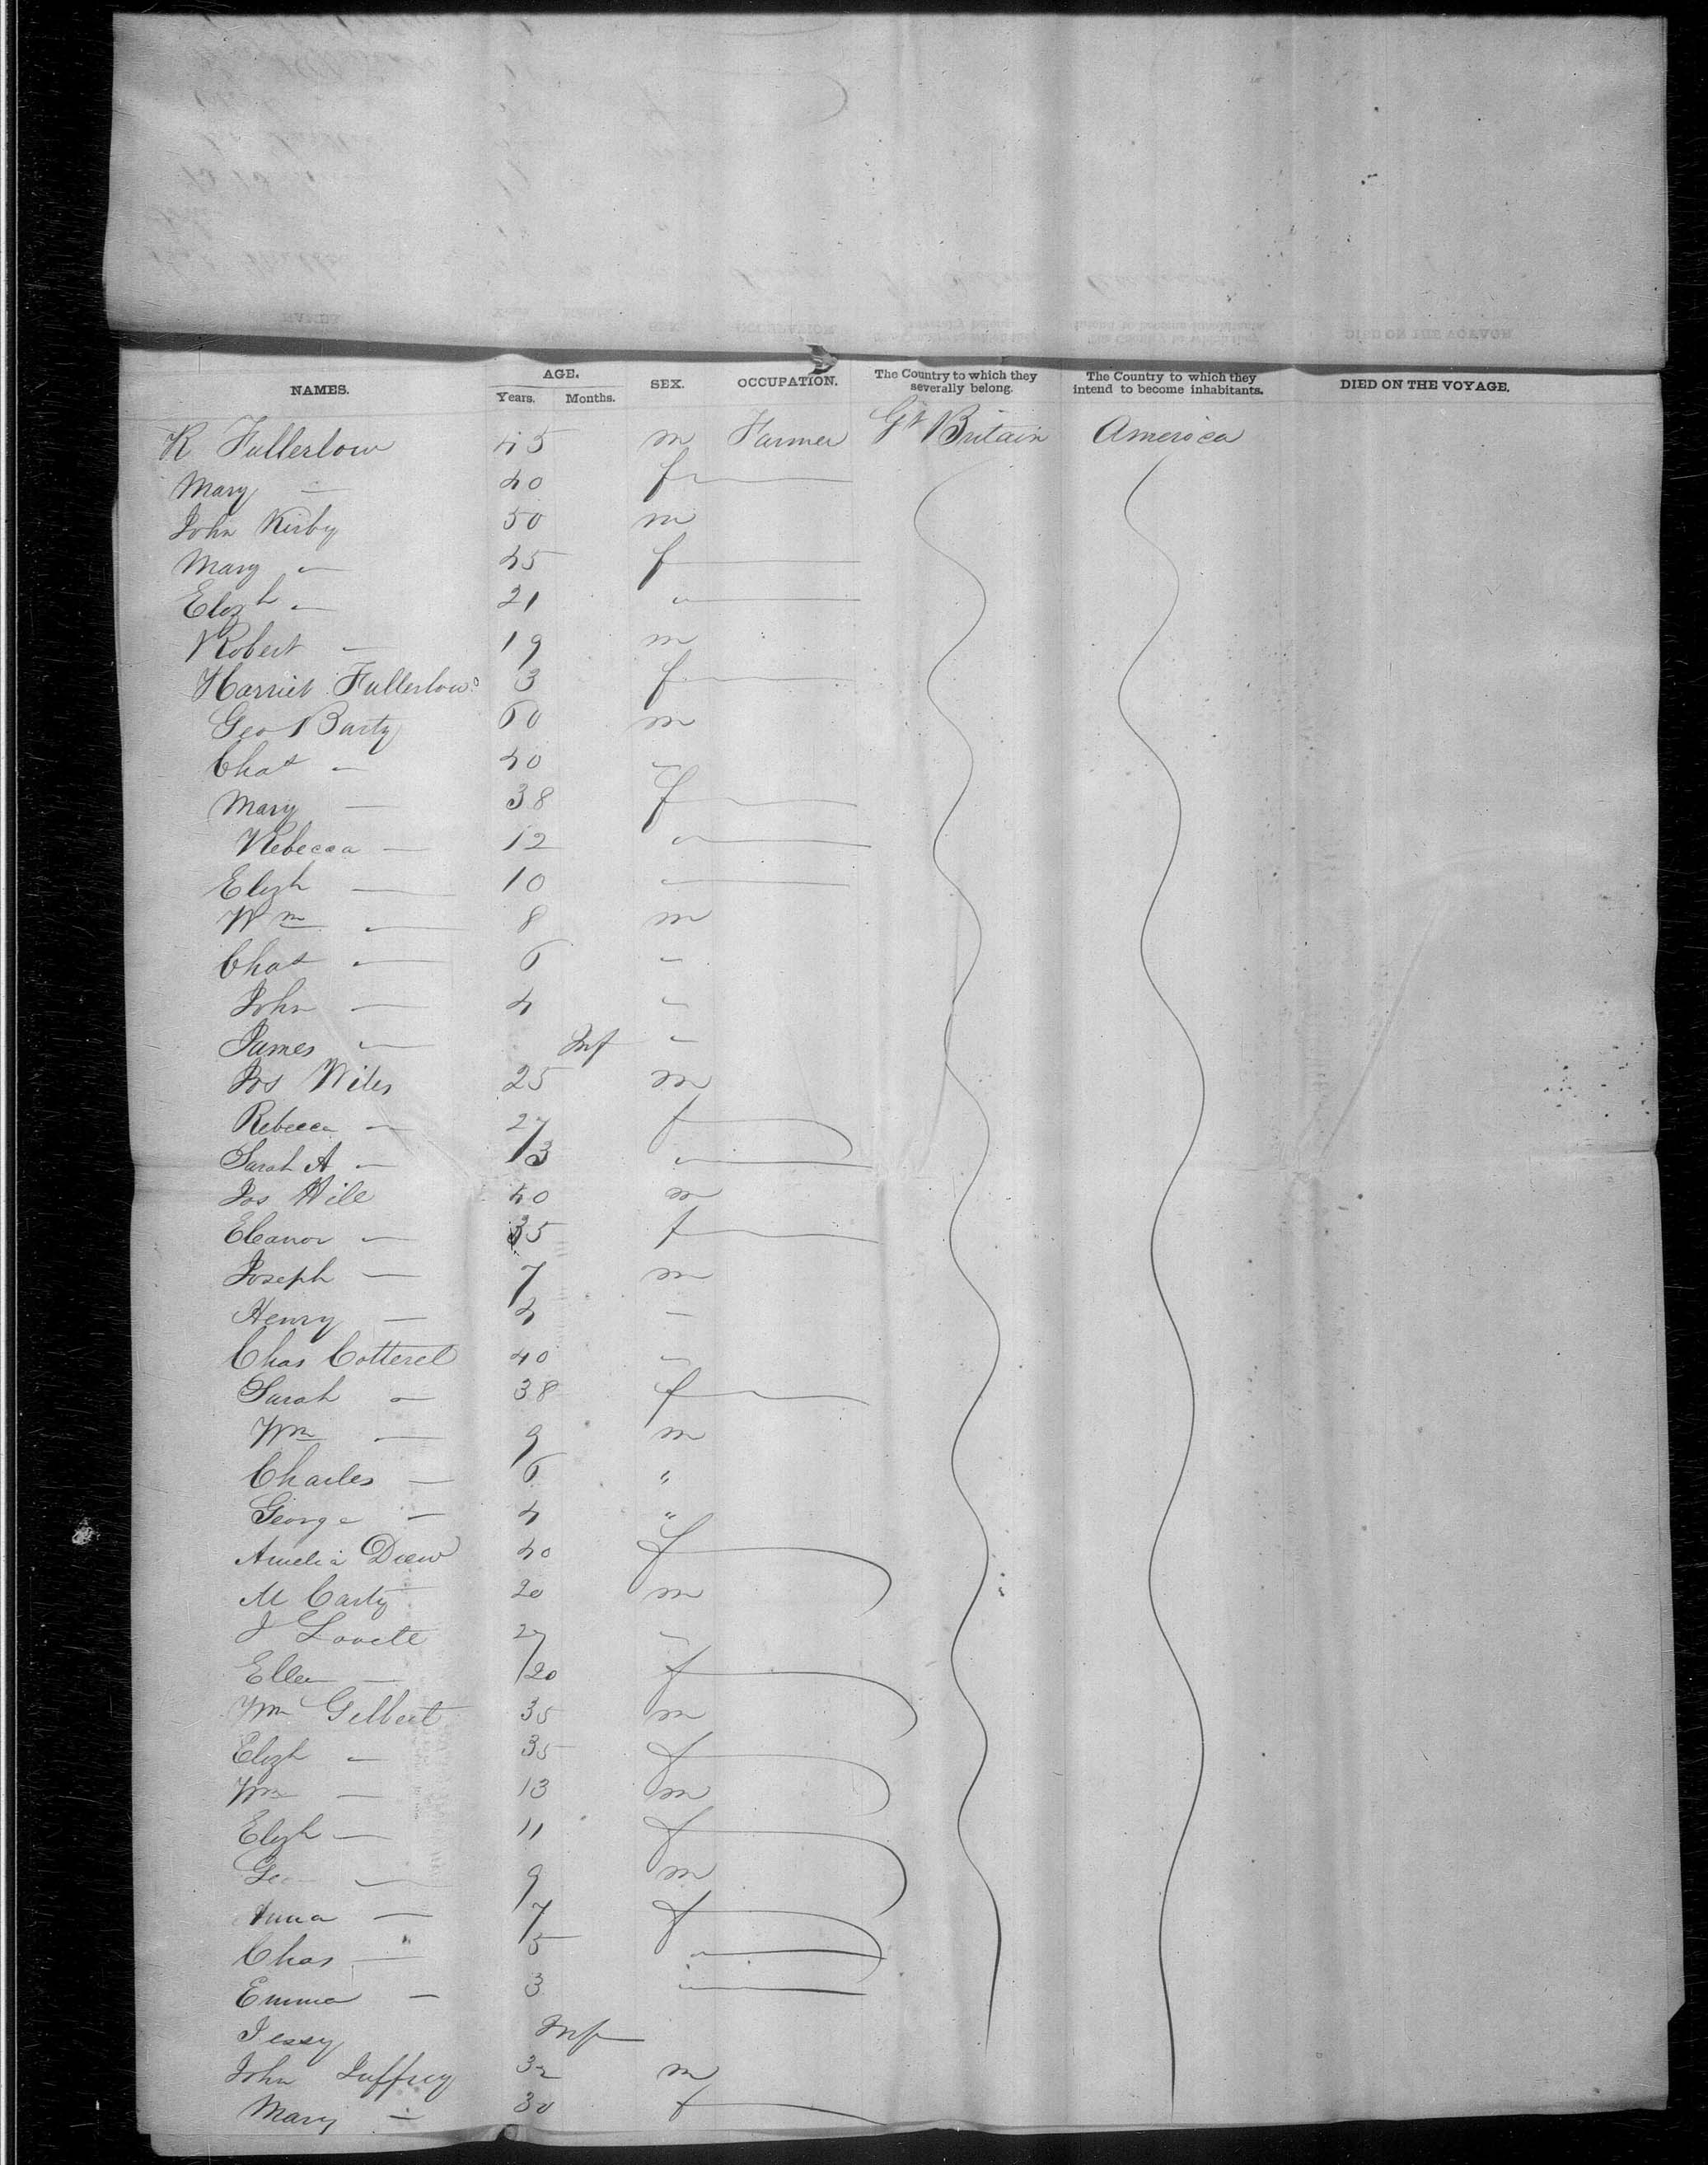 NAMES. AGE. Years. Months. SEX. OCCUPATION. The Country to which they severally belong. The Country to which they intend to become inhabitants. DIED ON THE VOYAGE.
R Fullerlow 45 m Farmer Gt Britain America
Mary — 40 f
John Kirby 50 m
Mary — 45 f
Elizh — 21 "
Robert — 19 m
Harriet Fullerlow 3 f
Geo Barty 60 m
Chas — 40 "
Mary — 38 f
Rebecca — 12 "
Elizh — 10 "
Wm — 8 m
Chas — 6 "
John — 4 "
James — Inf "
Jos Wiles 25 m
Rebecca — 27 f
Sarah A — 13 "
Jos Hill 40 m
Eleanor — 35 f
Joseph — 7 m
Henry — 4 "
Chas Cotterel 40 "
Sarah — 38 f
Wm — 9 m
Charles — 6 "
George — 4 "
Amelia Drew 40 f
M Carty 20 m
J Lovell 27 "
Ellen — 20 f
Wm Gilbert 35 m
Elizh — 35 f
Wm — 13 m
Elizh — 11 f
Geo — 9 m
Anna — 7 f
Chas — 5 "
Emma — 3 "
Jessy Inf
John Juffrey 32 m
Mary — 30 f